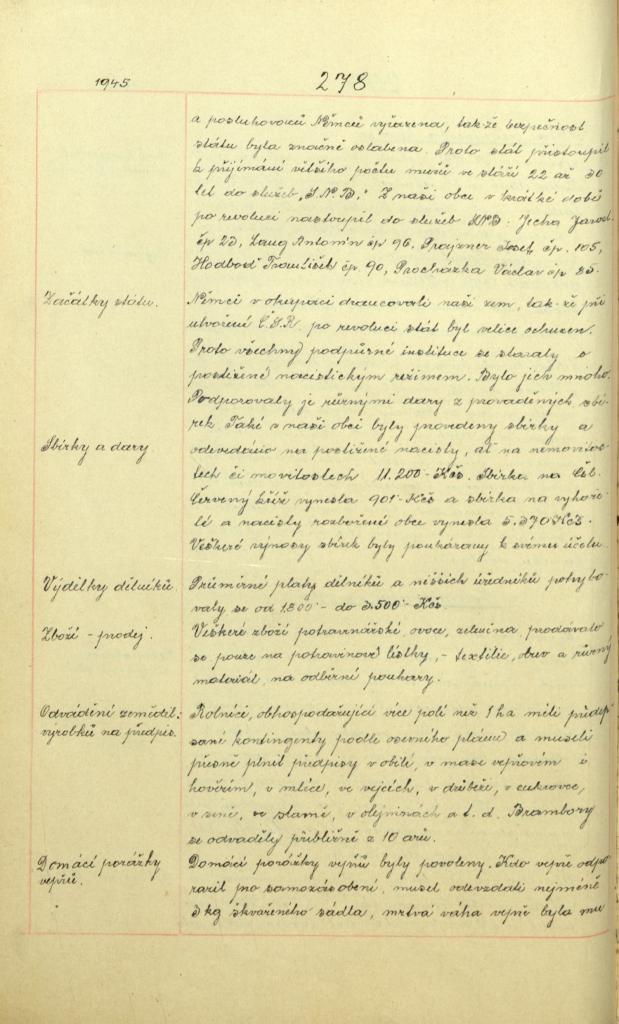 1945
278
a posluhovačů Němců vyřazena, tak-že bezpečnost
státu byla značně oslabena. Proto stát přistoupil
k přijímání většího počtu mužů ve stáří 22 až 30
let do služeb „S.N.B." Z naší obce v krátké době
po revoluci nastoupil do služeb SNB: Jecha Jarosl.
čp 23, Laug Antonín čp 96, Prajzner Josef, čp. 105,
Hodboď František čp. 90, Procházka Václav čp 85.
Začátky státu.
Němci v okupaci drancovali naši zem, tak-že při
utvoření Č.S.R. po revoluci stát byl velice ochuzen.
Proto všechny podpůrné instituce se staraly o
postižené nacistickým režimem. Bylo jich mnoho.
Podporovaly je různými dary z prováděných sbí-
rek Také v naší obci byly provedeny sbírky a
Sbírky a dary
odevzdáno na postižené nacisty, ať na nemovitos-
tech či movitostech 11.200- Kčs. Sbírka na Čsl.
Červený kříž vynesla 901- Kčs a sbírka na vyhoře-
lé a nacisty rozbořené obce vynesla 5.370 Kčs.
Veškeré výnosy sbírek byly poukázány k svému účelu.
Výdělky dělníků.
Průměrné platy dělníků a nižších úředníků pohybo-
valy se od 1.800- do 3.500- Kčs.
Zboží - prodej.
Veškeré zboží potravinářské, ovoce, zelenina, prodávalo
se pouze na potravinové lístky, - textilie, obuv a různý
materiál, na odběrní poukazy.
Odvádění zeměděl.
výrobků na předpis.
Rolníci, obhospodařující více polí než 1 ha měli přede-
psané kontingenty podle osevního plánu a museli
přesně plnit předpisy v obilí, v mase vepřovém i
hovězím, v mléce, ve vejcích, v drůbeži, v cukrovce,
v seně, ve slámě, v olejninách a t. d. Brambory
se odváděly přibližně z 10 arů.
Domácí porážky
vepřů.
Domácí porážky vepřů byly povoleny. Kdo vepře odpo-
razil pro samozásobení, musel odevzdati nejméně
3 kg škvařeného sádla, mrtvá váha vepře byla mu